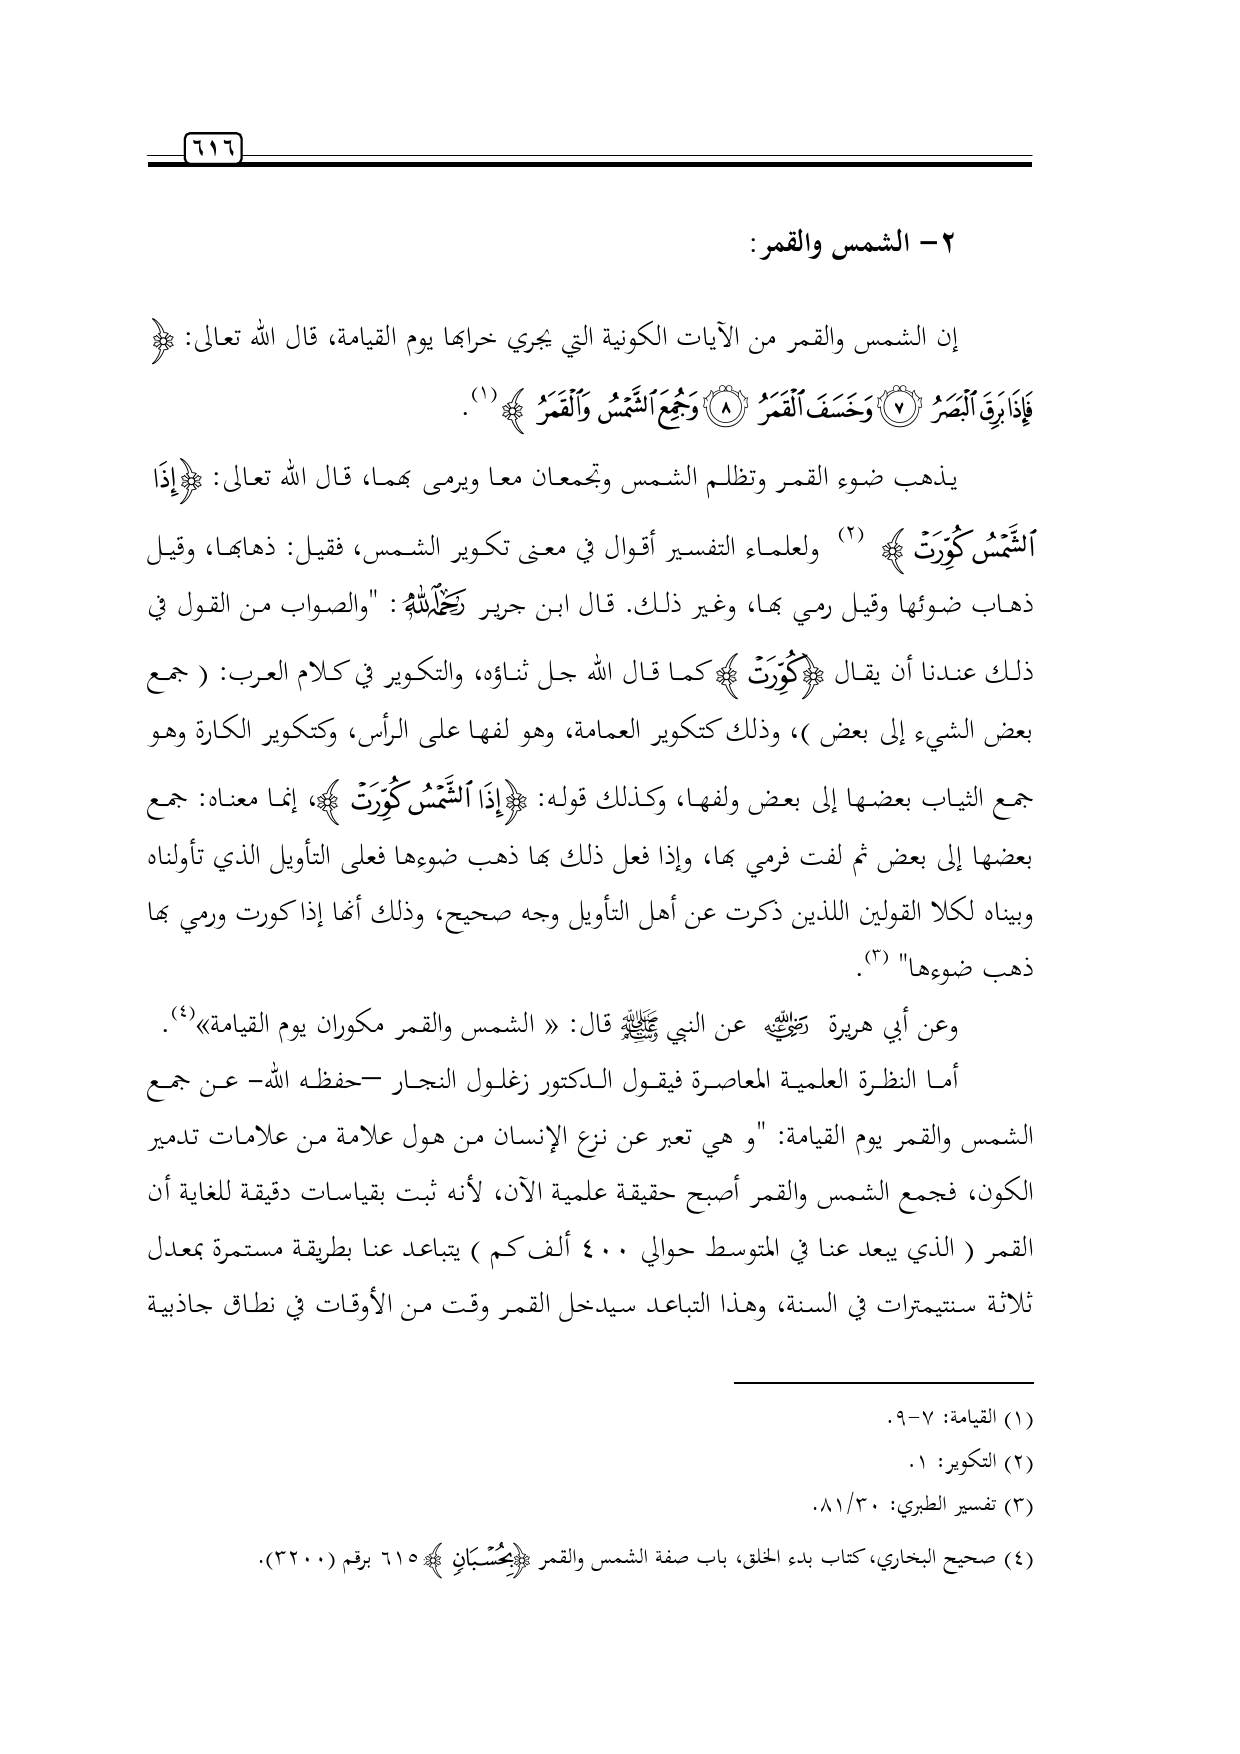 ٦١٦
٢- الشمس والقمر:
إن الشمس والقمر من الآيات الكونية التي يجري خرابها يوم القيامة، قال الله تعالى: ﴿
فَإِذَا بَرِقَ ٱلْبَصَرُ ٧ وَخَسَفَ ٱلْقَمَرُ ٨ وَجُمِعَ ٱلشَّمْسُ وَٱلْقَمَرُ ﴾(١).
يذهب ضوء القمر وتظلم الشمس وتجمعان معا ويرمى بهما، قال الله تعالى: ﴿إِذَا
ٱلشَّمْسُ كُوِّرَتْ ﴾ (٢) ولعلماء التفسير أقوال في معنى تكوير الشمس، فقيل: ذهابها، وقيل
ذهاب ضوئها وقيل رمي بها، وغير ذلك. قال ابن جرير رحمه الله: "والصواب من القول في
ذلك عندنا أن يقال ﴿كُوِّرَتْ ﴾ كما قال الله جل ثناؤه، والتكوير في كلام العرب: ( جمع
بعض الشيء إلى بعض )، وذلك كتكوير العمامة، وهو لفها على الرأس، وكتكوير الكارة وهو
جمع الثياب بعضها إلى بعض ولفها، وكذلك قوله: ﴿إِذَا ٱلشَّمْسُ كُوِّرَتْ ﴾، إنما معناه: جمع
بعضها إلى بعض ثم لفت فرمي بها، وإذا فعل ذلك بها ذهب ضوءها فعلى التأويل الذي تأولناه
وبيناه لكلا القولين اللذين ذكرت عن أهل التأويل وجه صحيح، وذلك أنها إذا كورت ورمي بها
ذهب ضوءها" (٣).
وعن أبي هريرة رضي الله عنه عن النبي ﷺ قال: « الشمس والقمر مكوران يوم القيامة»(٤).
أما النظرة العلمية المعاصرة فيقول الدكتور زغلول النجار –حفظه الله- عن جمع
الشمس والقمر يوم القيامة: "و هي تعبر عن نزع الإنسان من هول علامة من علامات تدمير
الكون، فجمع الشمس والقمر أصبح حقيقة علمية الآن، لأنه ثبت بقياسات دقيقة للغاية أن
القمر ( الذي يبعد عنا في المتوسط حوالي ٤٠٠ ألف كم ) يتباعد عنا بطريقة مستمرة بمعدل
ثلاثة سنتيمترات في السنة، وهذا التباعد سيدخل القمر وقت من الأوقات في نطاق جاذبية
(١) القيامة: ٧-٩.
(٢) التكوير: ١.
(٣) تفسير الطبري: ٨١/٣٠.
(٤) صحيح البخاري، كتاب بدء الخلق، باب صفة الشمس والقمر ﴿بِحُسْبَانٍ ﴾ ٦١٥ برقم (٣٢٠٠).